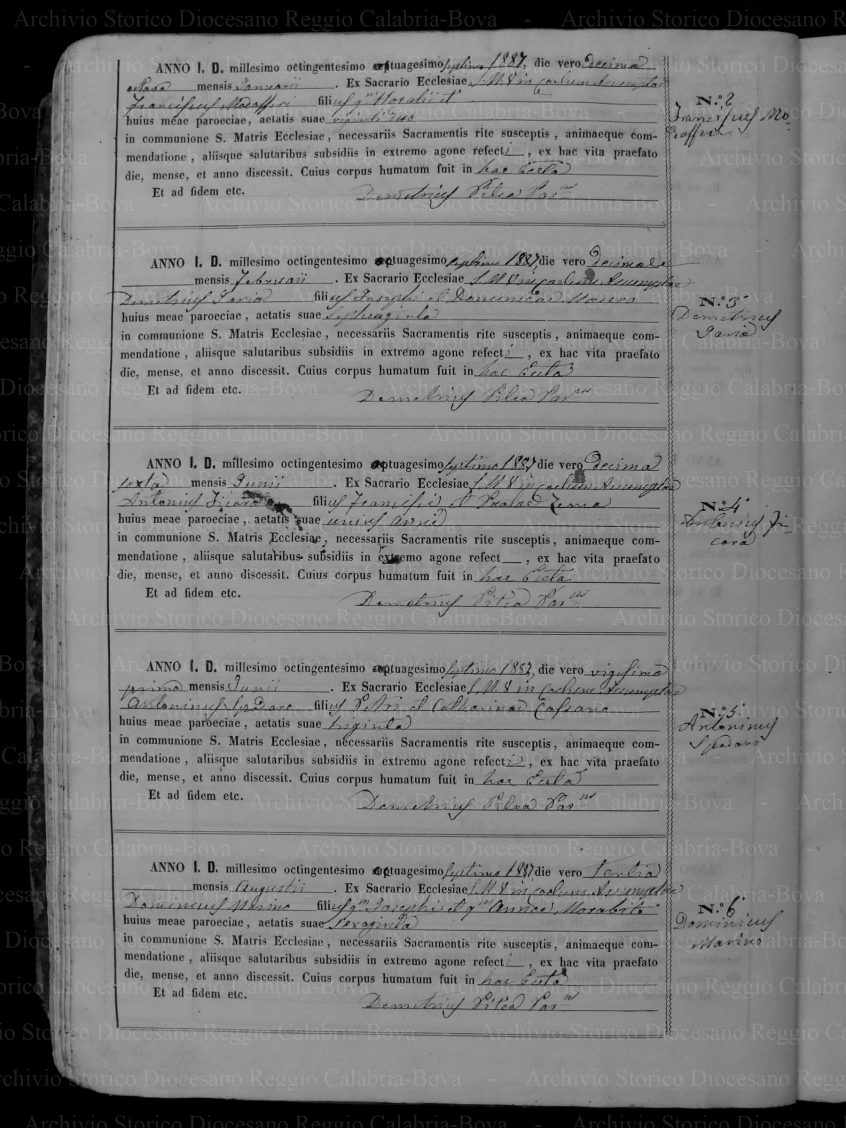 ANNO I. D. millesimo octingentesimo optuagesimo septimo 1887, die vero Decima
octava mensis Januarii. Ex Sacrario Ecclesiae S. M. V. in coelum Assumptae
Franciscus Modafferi filius qm Horatii et
huius meae paroeciae, aetatis suae viginti duo
in communione S. Matris Ecclesiae, necessariis Sacramentis rite susceptis, animaeque com-
mendatione, aliisque salutaribus subsidiis in extremo agone refecti, ex hac vita praefato
die, mense, et anno discessit. Cuius corpus humatum fuit in hac Eccta
Et ad fidem etc.
Demetrius Pitea Par.us
N.° 2
Franciscus Mo-
daffери
ANNO I. D. millesimo octingentesimo optuagesimo septimo 1887, die vero Decima
mensis Februarii. Ex Sacrario Ecclesiae S. M. V. in coelum Assumptae
Demetrius Paria filius Josephi et Dominicae Mauro
huius meae paroeciae, aetatis suae septuaginta
in communione S. Matris Ecclesiae, necessariis Sacramentis rite susceptis, animaeque com-
mendatione, aliisque salutaribus subsidiis in extremo agone refecti, ex hac vita praefato
die, mense, et anno discessit. Cuius corpus humatum fuit in hac Eccta
Et ad fidem etc.
Demetrius Pitea Par.us
N.° 3°
Demetrius
Paria
ANNO I. D. millesimo octingentesimo optuagesimo septimo 1887 die vero Decima
sexta mensis Junii. Ex Sacrario Ecclesiae S. M. V. in coelum Assumptae
Antonius Ficara filius Francisci et Paolae Zema
huius meae paroeciae, aetatis suae unius anni
in communione S. Matris Ecclesiae, necessariis Sacramentis rite susceptis, animaeque com-
mendatione, aliisque salutaribus subsidiis in extremo agone refect , ex hac vita praefato
die, mense, et anno discessit. Cuius corpus humatum fuit in hac Eccta
Et ad fidem etc.
Demetrius Pitea Par.us
N.° 4°
Antonius Fi-
cara
ANNO I. D. millesimo octingentesimo optuagesimo septimo 1887, die vero vigesima
prima mensis Junii. Ex Sacrario Ecclesiae S. M. V. in Coelum Assumptae
Antoninus Spadaro filius Petri et Catharinae Cassano
huius meae paroeciae, aetatis suae triginta
in communione S. Matris Ecclesiae, necessariis Sacramentis rite susceptis, animaeque com-
mendatione, aliisque salutaribus subsidiis in extremo agone refecti, ex hac vita praefato
die, mense, et anno discessit. Cuius corpus humatum fuit in hac Eccta
Et ad fidem etc.
Demetrius Pitea Par.us
N.° 5°
Antoninus
Spadaro
ANNO I. D. millesimo octingentesimo optuagesimo septimo 1887 die vero Tertia
mensis Augusti. Ex Sacrario Ecclesiae S. M. V. in coelum Assumptae
Dominicus Marino filius qm Josephi et qm Annae Morabito
huius meae paroeciae, aetatis suae sexaginta
in communione S. Matris Ecclesiae, necessariis Sacramentis rite susceptis, animaeque com-
mendatione, aliisque salutaribus subsidiis in extremo agone refecti, ex hac vita praefato
die, mense, et anno discessit. Cuius corpus humatum fuit in hac Eccta
Et ad fidem etc.
Demetrius Pitea Par.us
N.° 6°
Dominicus
Marino
Archivio Storico Diocesano Reggio Calabria-Bova